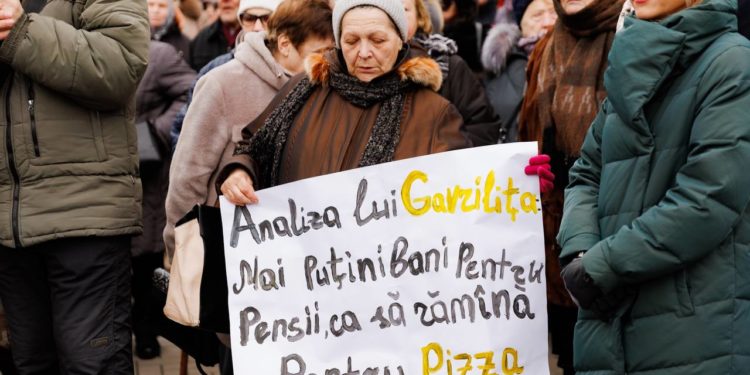 Analiza lui Gavzilița:
Mai puțini Bani Pentru
Pensii, ca să rămînă
Pentru Pizza